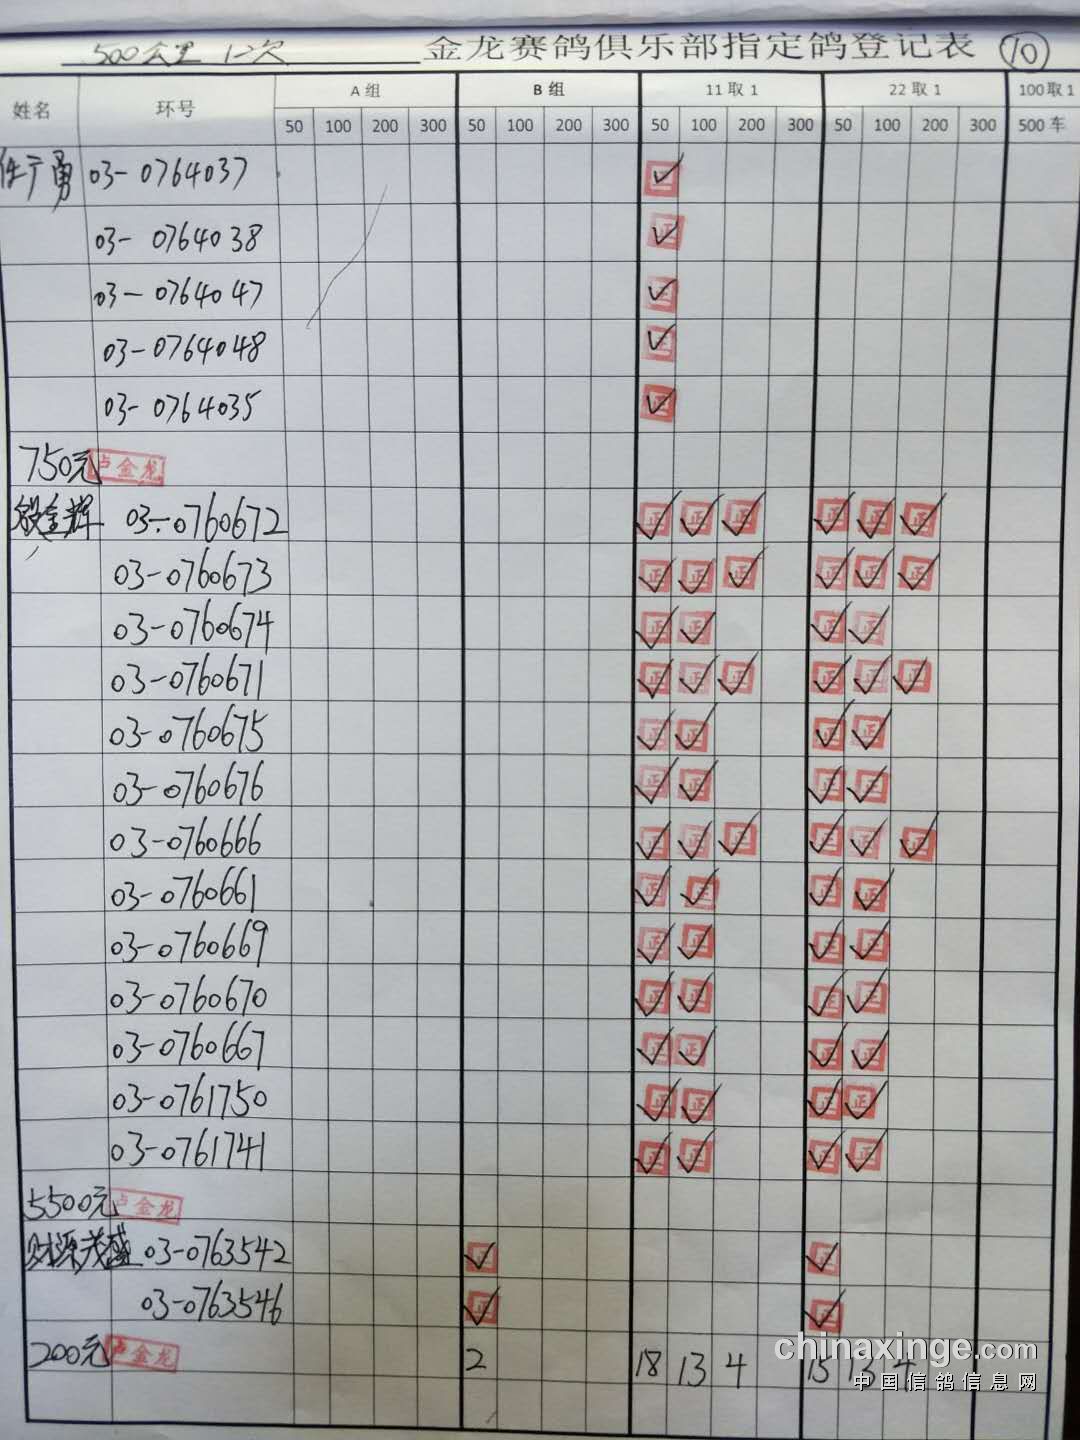 500公里 12次 金龙赛鸽俱乐部指定鸽登记表 10
姓名 环号 A组 B组 11取1 22取1 100取1
50 100 200 300 50 100 200 300 50 100 200 300 50 100 200 300 500车
任广勇 03-0764037 正
03-0764038 正
03-0764047 正
03-0764048 正
03-0764035 正
750元 卢金龙
殷金辉 03-0760672 正 正 正 正 正 正
03-0760673 正 正 正 正 正 正
03-0760674 正 正 正 正
03-0760671 正 正 正 正 正 正
03-0760675 正 正 正 正
03-0760676 正 正 正 正
03-0760666 正 正 正 正 正 正
03-0760661 正 正 正 正
03-0760669 正 正 正 正
03-0760670 正 正 正 正
03-0760667 正 正 正 正
03-0761750 正 正 正 正
03-0761741 正 正 正 正
5500元 卢金龙
财源茂盛 03-0763542 正 正
03-0763546 正 正
200元 卢金龙 2 18 13 4 15 13 4
chinaxinge.com
中国信鸽信息网